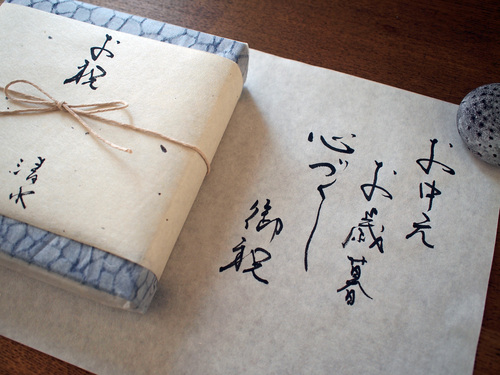 お中元
お歳暮
心づくし
御祝
お祝
清水